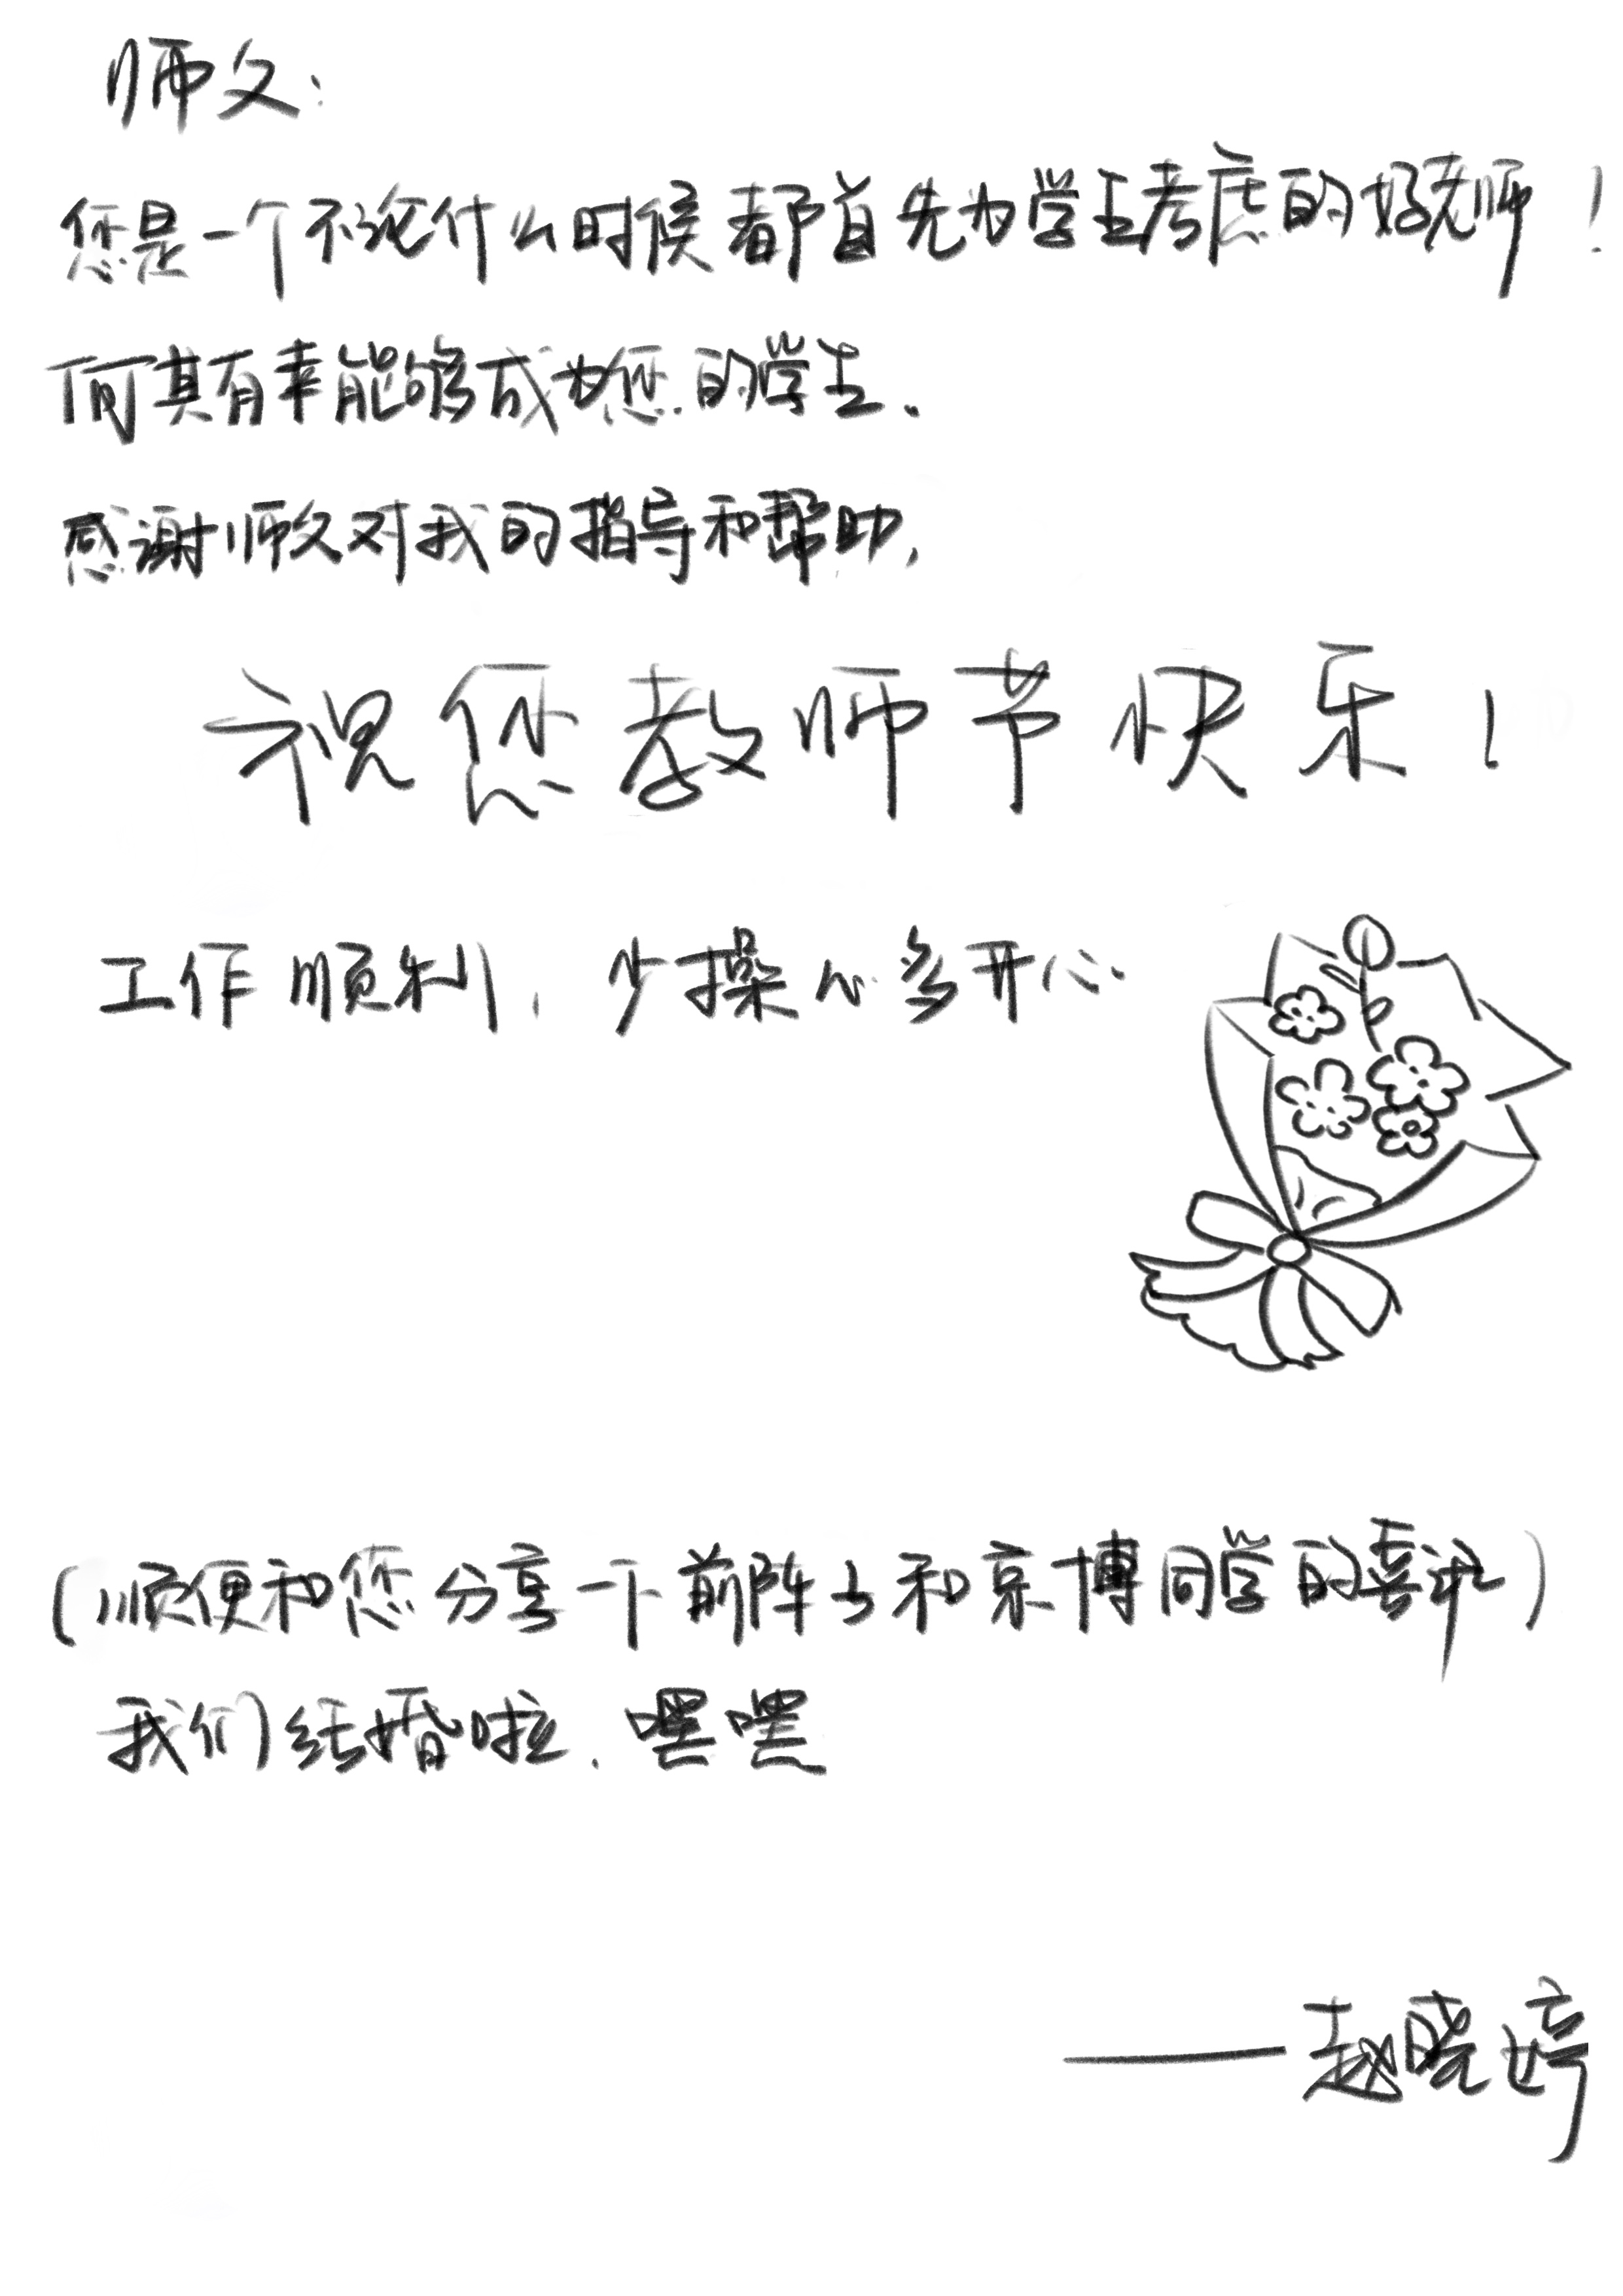 师父：
您是一个不论什么时候都首先为学生考虑的好老师！
何其有幸能够成为您的学生.
感谢师父对我的指导和帮助,
祝您教师节快乐！
工作顺利，少操心多开心.
（顺便和您分享一下前阵子和京博同学的喜讯）
我们结婚啦.嘿嘿
——赵晓婷